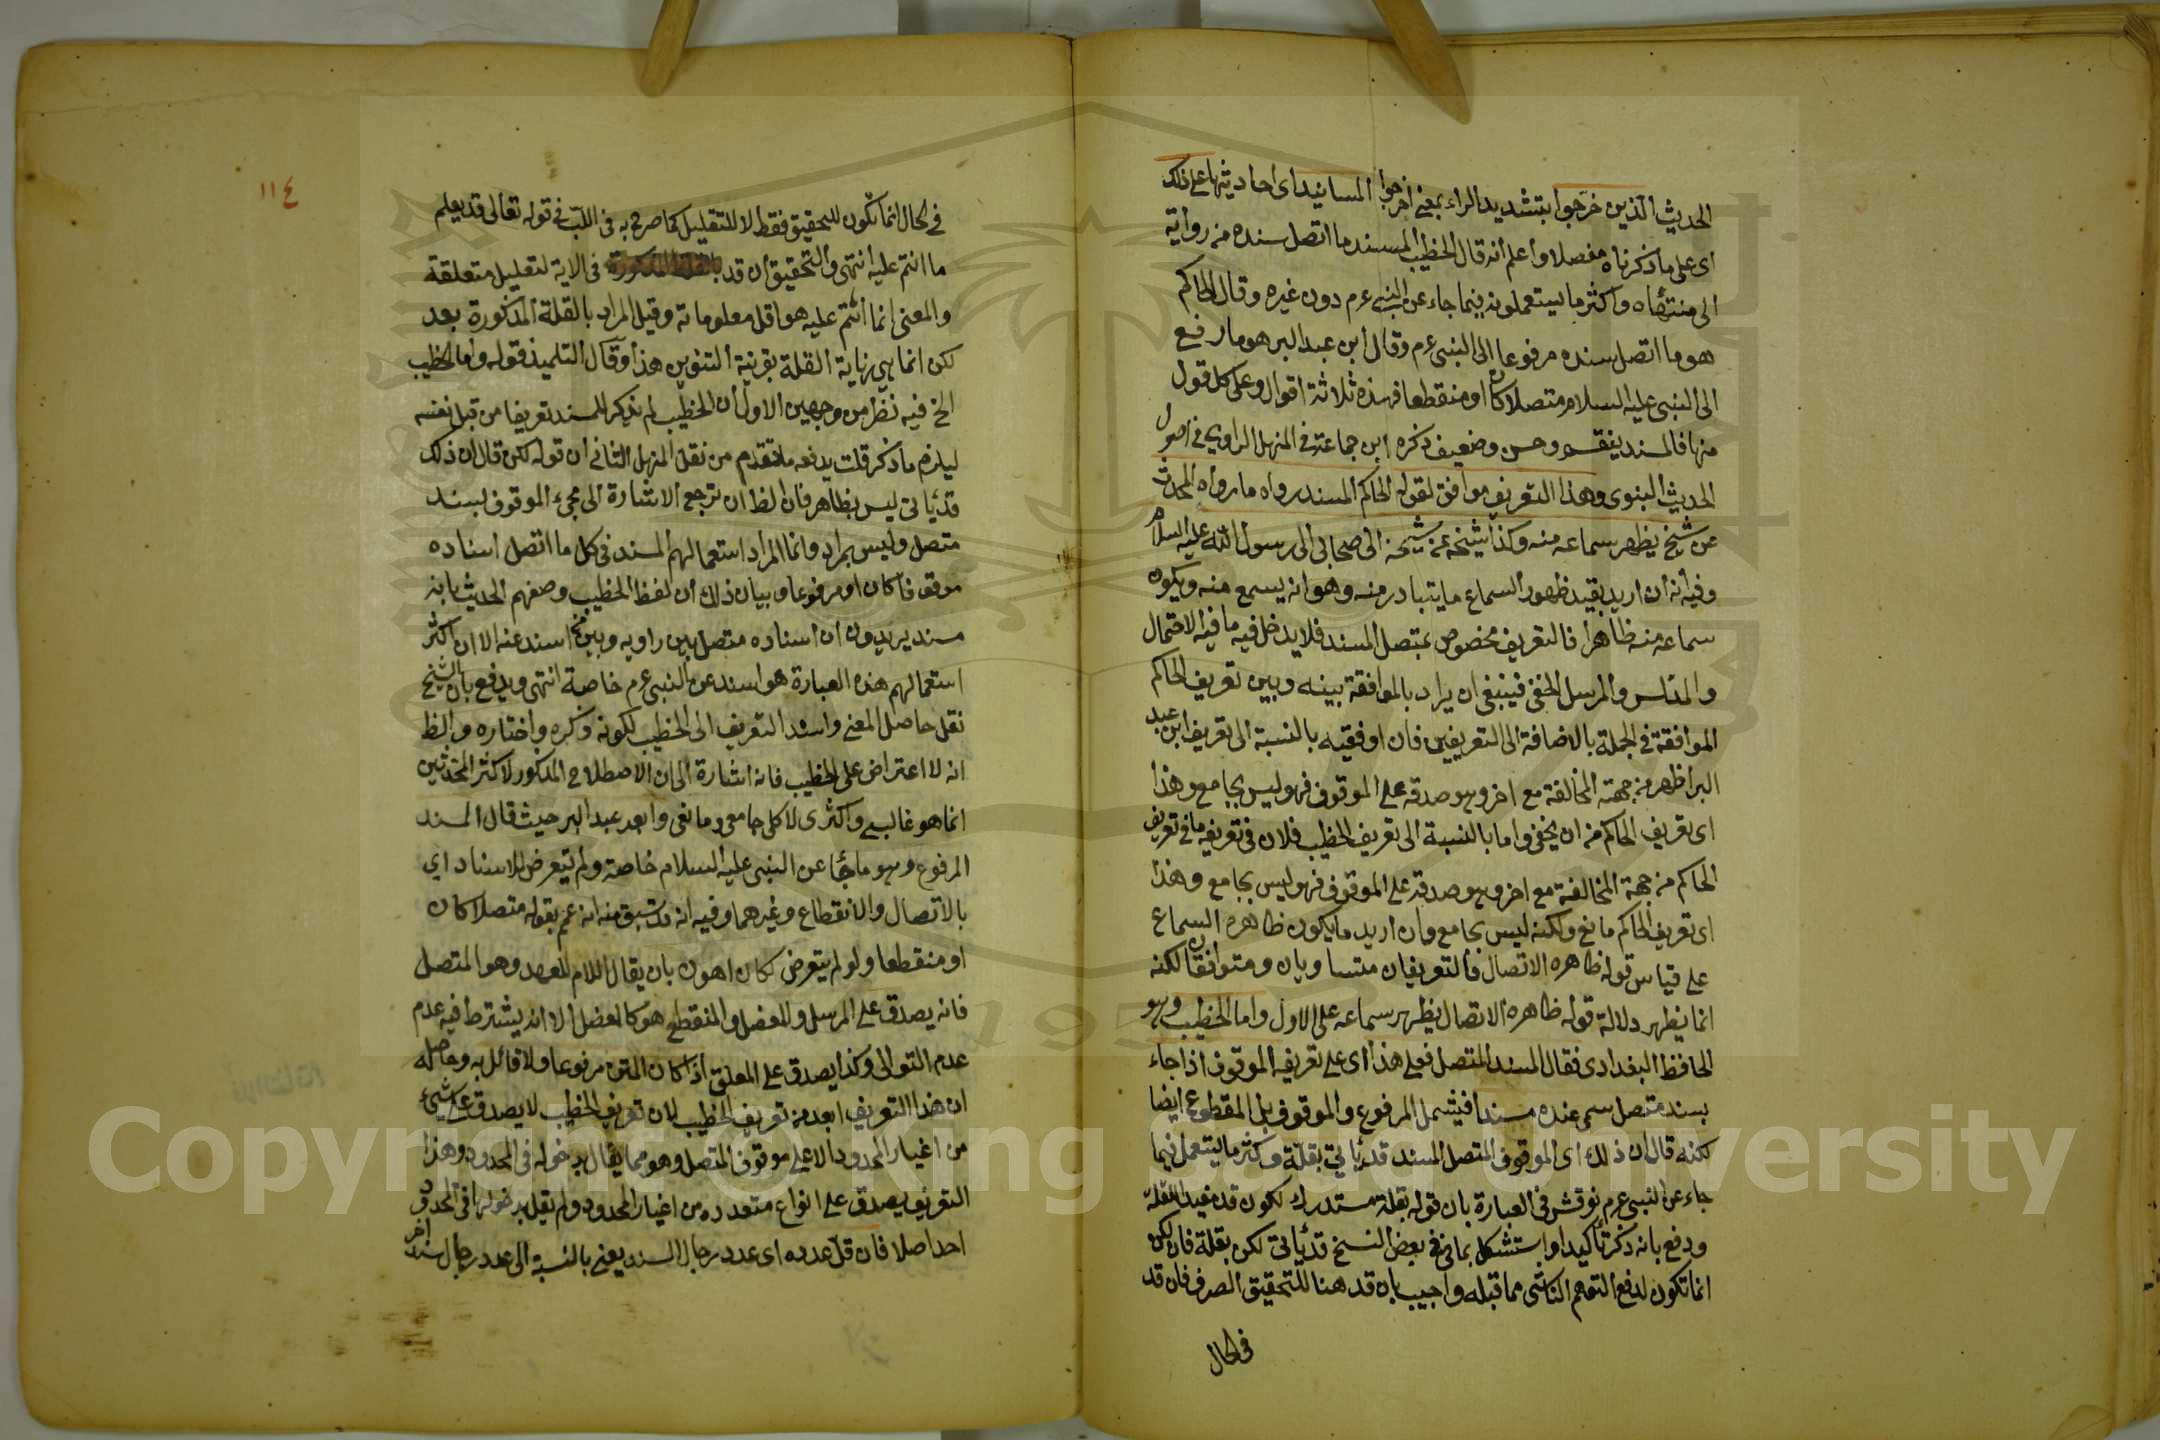 الحديث الذين خرجوا بتشديد الراء بمعنى اخرجوا المسانيد اى احاديثها على ذلك
اى على ما ذكرناه مفصلا واعلم انه قال الخطيب المسند ما اتصل سنده من رواية
الى منتهاه واكثر ما يستعملونه فيما جاء عن النبي عم دون غيره وقال الحاكم
هو ما اتصل سنده مرفوعا الى النبى عم وقال ابن عبد البر هو ما رفع
الى النبى عليه السلام متصلا كان او منقطعا فهذه ثلاثة اقوال وعلى كل قول
منها فالمسند ينقسم وحسن وضعيف ذكره ابن جماعة في المنهل الراوي في اصول
الحديث النبوى وهذا التعريف موافق لقول الحاكم المسند رواه ما رواه المحدث
عن شيخ يظهر سماعه منه وكذا شيخه عن شيخه الى صحابى الى رسول الله عليه السلام
وفيه انه ان اريد بقيد ظهور السماع ما يتبادر منه وهو انه يسمع منه ويكون
سماعه منه ظاهرا فالتعريف مخصوص بمتصل المسند فلا يدخل فيه ما فيه الاحتمال
والمدلس والمرسل الخفى فينبغى ان يراد بالموافقة بينه وبين تعريف الحاكم
الموافقة في الجملة بالاضافة الى التعريفين فان اوفقيته بالنسبة الى تعريف ابن عبد
البر اظهر من جهته المخالفة مع اخر وهو صدقه على الموقوف فهو ليس بجامع وهذا
اى تعريف الحاكم من ان يخفى واما بالنسبة الى تعريف الخطيب فلان في تعريفه ما في تعريف
الحاكم من جهة المخالفة مع اخر وهو صدقه على الموقوف فهو ليس بجامع وهذا
اى تعريف الحاكم مانع ولكنه ليس بجامع وان اريد ما يكون ظاهره السماع
على قياس قوله ظاهره الاتصال فالتعريفان متساويان ومتوافقان لكنه
انما يظهر دلالة قوله ظاهره الاتصال يظهر سماعه على الاول واما الخطيب وهو
الحافظ البغدادى فقال المسند المتصل فعلى هذا اى على تعريفه الموقوف اذا جاء
بسند متصل سمى عنده مسندا فيشمل المرفوع والموقوف بل المقطوع ايضا
لكنه قال ان ذلك اى الموقوف المتصل المسند قد يأتي بقلة وكثر ما يستعمل فيما
جاء عن النبى عم نوقش فى العبارة بان قوله بقلة مستدرك لكون قد مفيد القلة
ودفع بانه ذكر تأكيدا واستشكل بما في بعض النسخ قد يأتى لكن بقلة فان لكن
انما تكون لدفع التوهم الناشى مما قبله واجيب بان قد هنا للتحقيق الصرف فان قد
فى الحال
١١٤
في الحال انما تكون للتحقيق فقط لا للتقليل كما صرح به فى اللب في قوله تعالى قد يعلم
ما انتم عليه انتهى والتحقيق ان قد فى الاية لتقليل متعلقة
والمعنى انما انتم عليه هو اقل معلوماته وقيل المراد بالقلة المذكورة بعد
لكن انما هي نهاية القلة بقرينة التنوين هذا وقال التلميذ قوله واما الخطيب
الخ فيه نظر من وجهين الاول ان الخطيب لم يذكر للمسند تعريفا من قبل نفسه
ليلزم ما ذكر قلت يدفعه ما تقدم من نقل المنهل الثانى ان قوله لكن قال ان ذلك
قد يأتى ليس بظاهر فان الظ ان ترجع الاشارة الى مجىء الموقوف بسند
متصل وليس بمراد وانما المراد استعمالهم المسند فى كل ما اتصل اسناده
موقوفا كان او مرفوعا وبيان ذلك ان لفظ الخطيب وصفهم الحديث بانه
مسند يريدون ان اسناده متصل بين راويه وبين من اسند عنه الا ان اكثر
استعمالهم هذه العبارة هو اسند عن النبى عم خاصة انتهى ويدفع بان الشيخ
نقل حاصل المعنى واسند التعريف الى الخطيب لكونه ذكره واختاره والظ
انه لا اعتراض على الخطيب فانه اشارة الى ان الاصطلاح المذكور لاكثر المحدثين
انما هو غالبي واكثرى لا كلى جامعى ومانعى وابعد عبد البر حيث قال المسند
المرفوع وهو ما جاء عن النبى عليه السلام خاصة ولم يتعرض للاسناد اى
بالاتصال والانقطاع وغيرهما وفيه انه قد سبق منه انه عم بقوله متصلا كان
او منقطعا ولو لم يتعرض لكان اهون بان يقال اللام للعهد وهو المتصل
فانه يصدق على المرسل والمعضل والمنقطع هو كالمعضل الا انه يشترط فيه عدم
عدم التوالى وكذا يصدق على المعلق اذا كان المتن مرفوعا ولا قائل به وحاصله
ان هذا التعريف ابعد من تعريف الخطيب لان تعريف الخطيب لا يصدق على شىء
من اغيار المحدود الا على موقوف المتصل وهو مما يقال بدخوله فى المحدود وهذا
التعريف يصدق على انواع متعدده من اغيار المحدود ولم يقل بدخولها فى المحدود
احد اصلا فان قل عدده اى عدد رجال السند يعنى بالنسبة الى عدد رجال سند اخر
Copyright © King Saud University
195